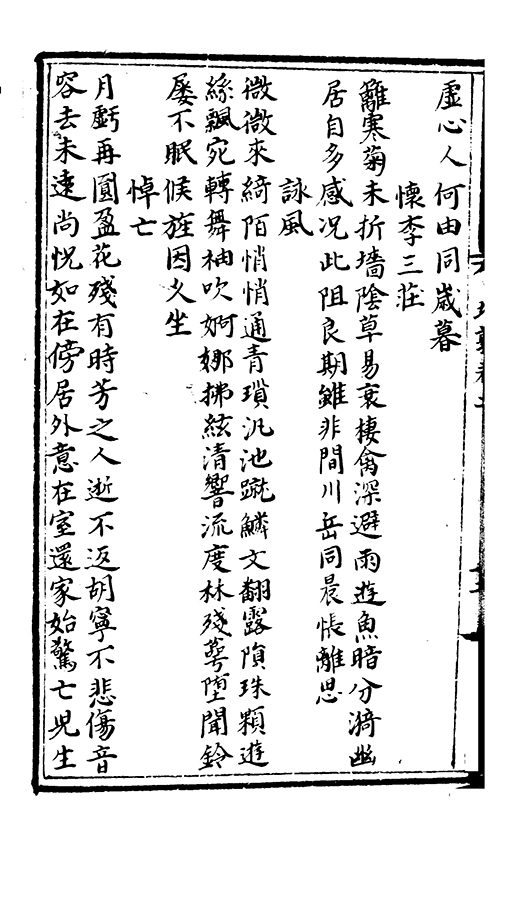 虛心人何由同嵗暮
懷李三莊
籬寒菊未折墻陰草易衰棲禽深避雨遊魚暗分漪幽
居自多感况此阻良期雖非間川岳同晨悵離思
詠風
微微來綺陌悄悄通青瑣汎池蹴鱗文翻露隕珠顆遊
絲飄宛轉舞袖吹婀娜拂絃清響流度林殘萼墮聞鈴
屡不眠候旌因久坐
悼亡
月虧再圓盈花殘有時芳之人逝不返胡寧不悲傷音
容去未遠尚怳如在傍居外意在室還家始驚亡兒生